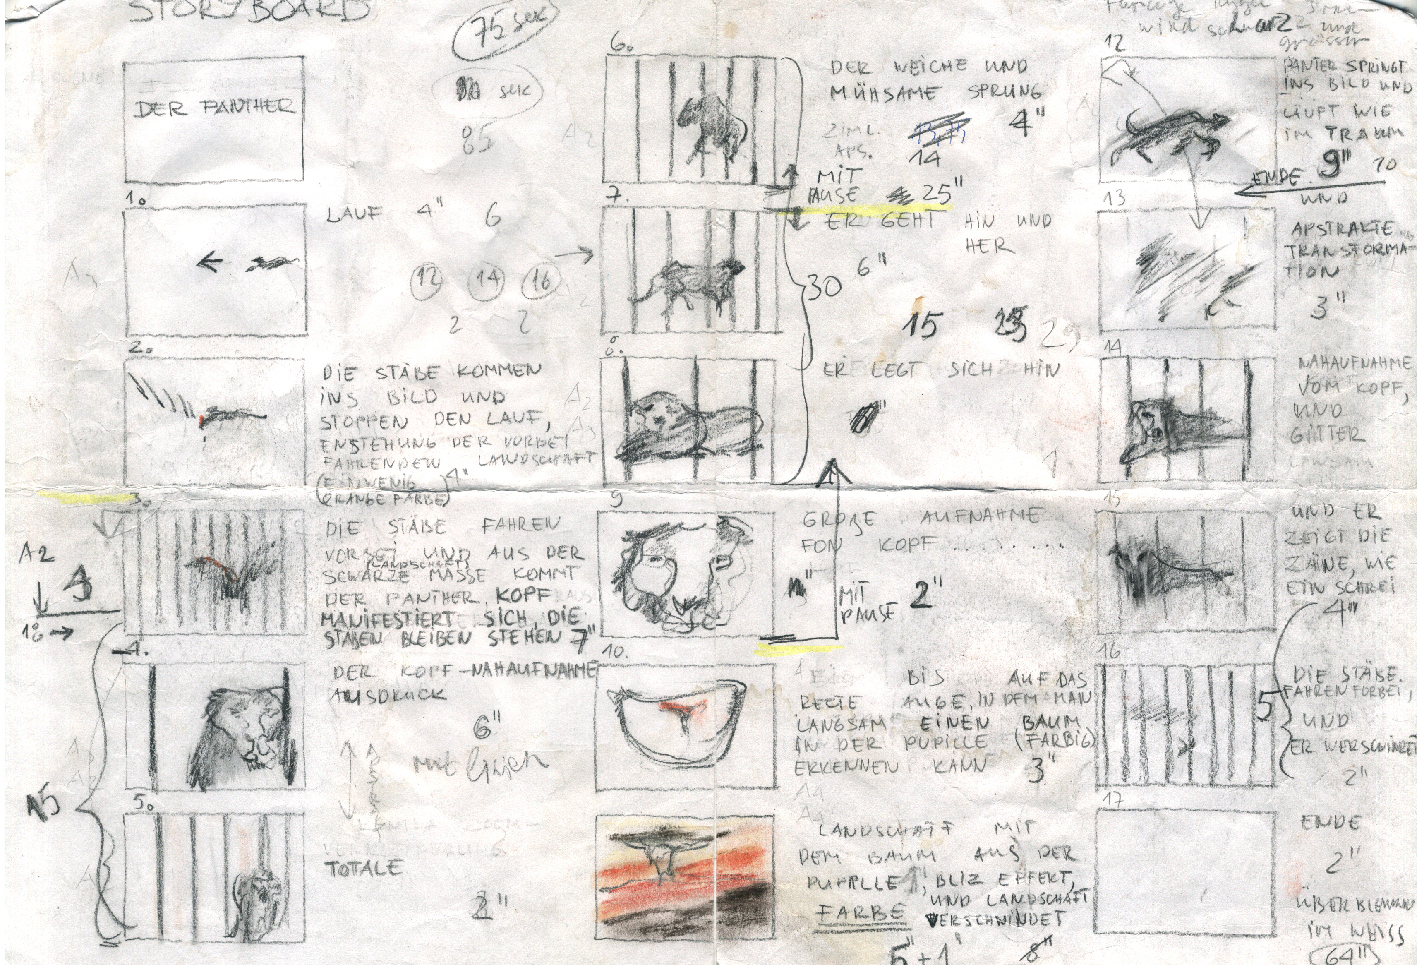 STORYBOARD
75 sek
sek
85
DER PANTHER
1.
LAUF 4" 6
12 14 16
2 2
2.
DIE STÄBE KOMMEN
INS BILD UND
STOPPEN DEN LAUF,
ENSTEHUNG DER VORBEI
FAHRENDEN LANDSCHAFT
(EIN WENIG
ORANGE FARBE)
3.
A2
18 →
DIE STÄBE FAHREN
VORBEI UND AUS DER
(LANDSCHAFT)
SCHWARZE MASSE KOMMT
DER PANTHER. KOPF
MANIFESTIERT SICH, DIE
STÄBEN BLEIBEN STEHEN 7"
4.
DER KOPF-NAHAUFNAHME
AUSDRUCK
6"
15
5.
TOTALE
2"
6.
DER WEICHE UND
MÜHSAME SPRUNG
4"
14
MIT
PAUSE 25"
7.
ER GEHT HIN UND
HER
6"
30
15 23 29
8.
ER LEGT SICH HIN
9
GROßE AUFNAHME
FON KOPF
MIT
PAUSE
2"
10.
BIS AUF DAS
RECTE AUGE, IN DEM MAN
LANGSAM EINEN BAUM
IN DER PUPILLE (FARBIG)
ERKENNEN KANN 3"
LANDSCHAFT MIT
DEM BAUM AUS DER
PUPILLE, BLIZ EFFEKT,
UND LANDSCHAFT
FARBE VERSCHWINDET
5"+1" 8"
wird schwarz und
grösser
12
PANTER SPRINGT
INS BILD UND
LÄUFT WIE
IM TRAUM
9"
ENDE 10
UND
13
APSTRAKTE
TRANSFORMA-
TION
3"
14
NAHAUFNAHME
VOM KOPF,
UND
GITTER
LANGSAM
15
UND ER
ZEIGT DIE
ZÄNE, WIE
EIN SCHREI
4"
16
5
DIE STÄBE.
FAHREN FORBEI,
UND
ER WERSCHWINDET
2"
17
ENDE
2"
ÜBERBLENDEN
IM WEISS
(64")